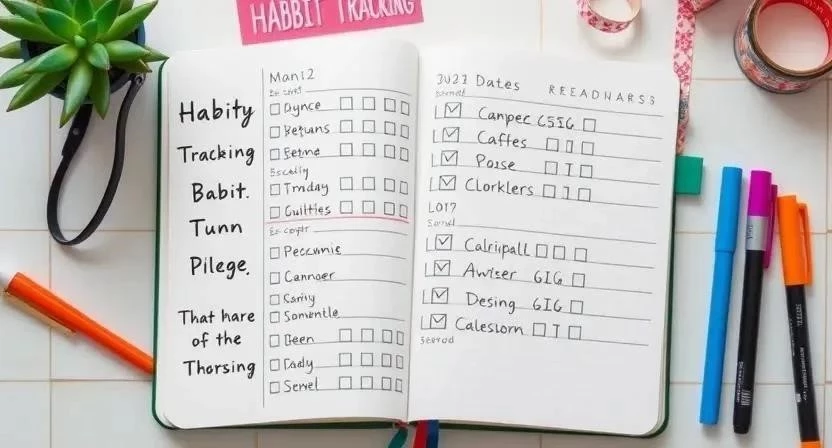 HABBIT TRACKING
Habity
Tracking
Babit.
Tunn
Pilege.
That hare
of the
Thorsing
Man12
Oynce
Betuns
Eetnd
Escelly
Tmday
Guilties
Peccunie
Cannoer
Carity
Somentle
Geen
Cady
Servel
3U21 Dates REEADHARSS
Canpec C5IG
Caffes
Poise
Clorklers
LOI7
Calripall
Awiser GIG
Desing GIG
Calesiorn
Servod